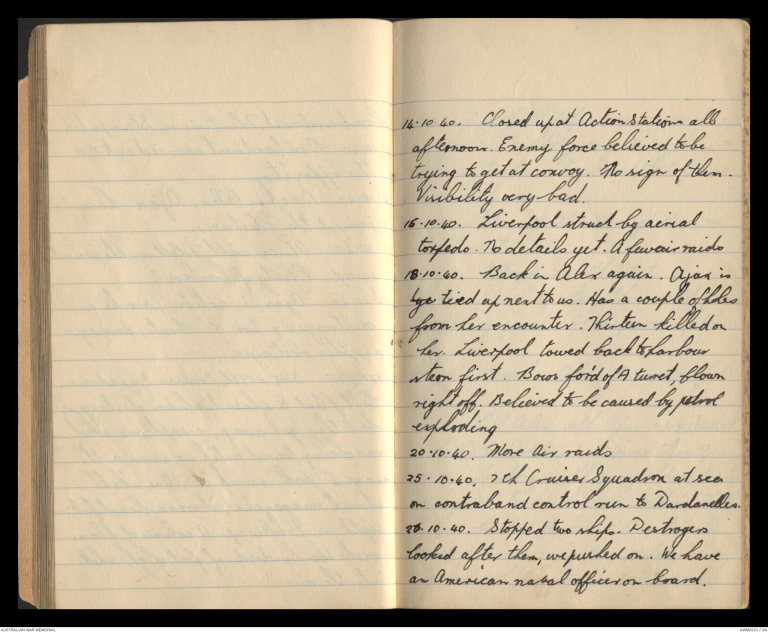 14.10.40. Closed up at Action Stations all
afternoon. Enemy force believed to be
trying to get at convoy. No sign of them.
Visibility very bad.
16.10.40. Liverpool struck by aerial
torpedo. No details yet. A few air raids
18.10.40. Back in Alex again. Ajax is
tied up next to us. Has a couple of holes
from her encounter. Thirteen killed on
her. Liverpool towed back to harbour
stern first. Bows for'd of A turret, blown
right off. Believed to be caused by petrol
exploding
20.10.40. More air raids
25.10.40. 7th Cruiser Squadron at sea
on contraband control run to Dardanelles.
26.10.40. Stopped two ships. Destroyers
looked after them, we pushed on. We have
an American naval officer on board.
AUSTRALIAN WAR MEMORIAL